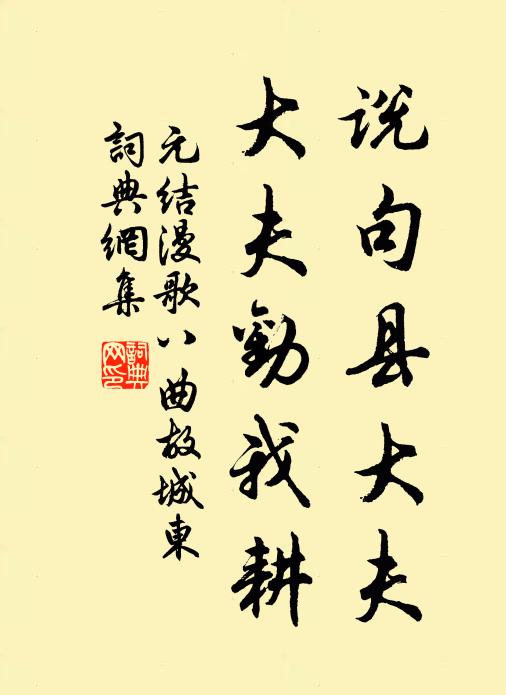 说句县大夫
大夫勸我耕
元结漫歌八曲故城東
詞典網集
詞典網印